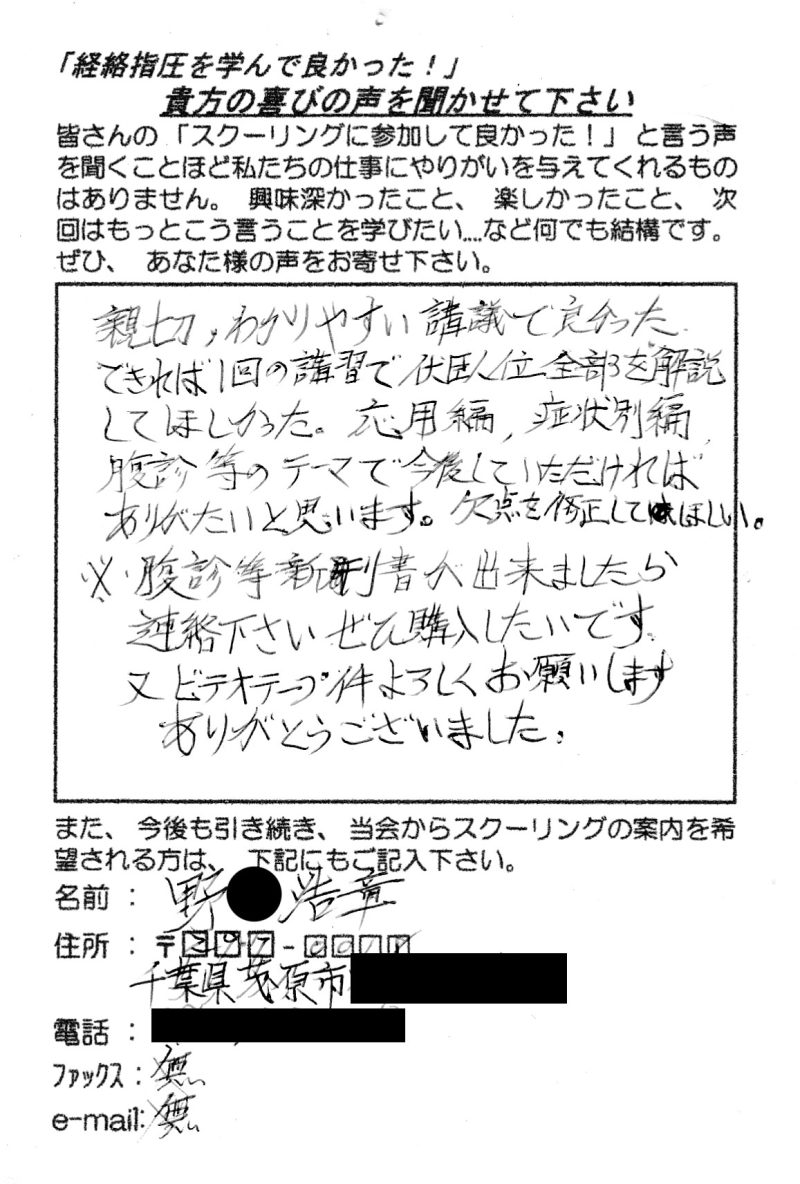 「経絡指圧を学んで良かった！」
貴方の喜びの声を聞かせて下さい
皆さんの「スクーリングに参加して良かった！」と言う声
を聞くことほど私たちの仕事にやりがいを与えてくれるもの
はありません。興味深かったこと、楽しかったこと、次
回はもっとこう言うことを学びたい....など何でも結構です。
ぜひ、あなた様の声をお寄せ下さい。
親切,わかりやすい講議で良かった
できれば1回の講習で伏臥位全部を解説
してほしかった。応用編,症状別編,
腹診等のテーマで今後していただければ
ありがたいと思います。欠点を修正してほしい。
※腹診等新刊書が出来ましたら
連絡下さいぜひ購入したいです。
又ビデオテープ件よろしくお願いします
ありがとうございました。
また、今後も引き続き、当会からスクーリングの案内を希
望される方は、下記にもご記入下さい。
名前：野 浩章
住所：〒297-001
千葉県茂原市
電話：
ファックス：無い
e-mail:無い